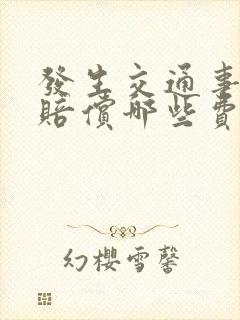 發生交通事
賠償哪些費
幻櫻雪馨